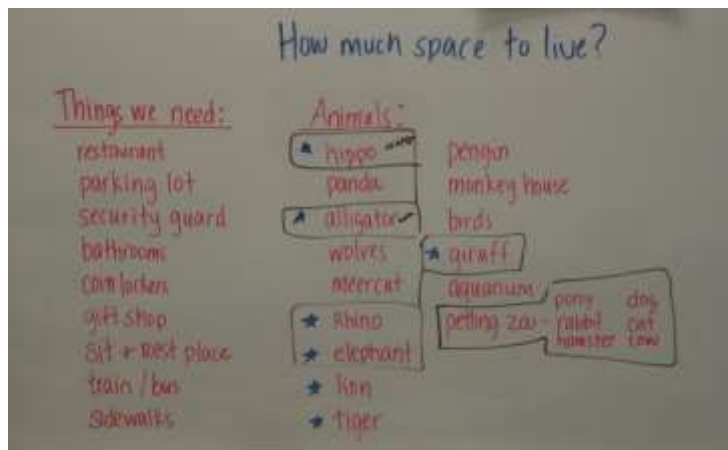 How much space to live?
Things we need:
restaurant
parking lot
security guard
bathrooms
coin lockers
gift shop
sit + Rest place
train / bus
sidewalks
Animals:
hippo
panda
alligator
wolves
meercat
Rhino
elephant
lion
tiger
pengin
monkey house
birds
giraff
aquarium
petting zoo - pony dog
rabbit cat
hamster cow